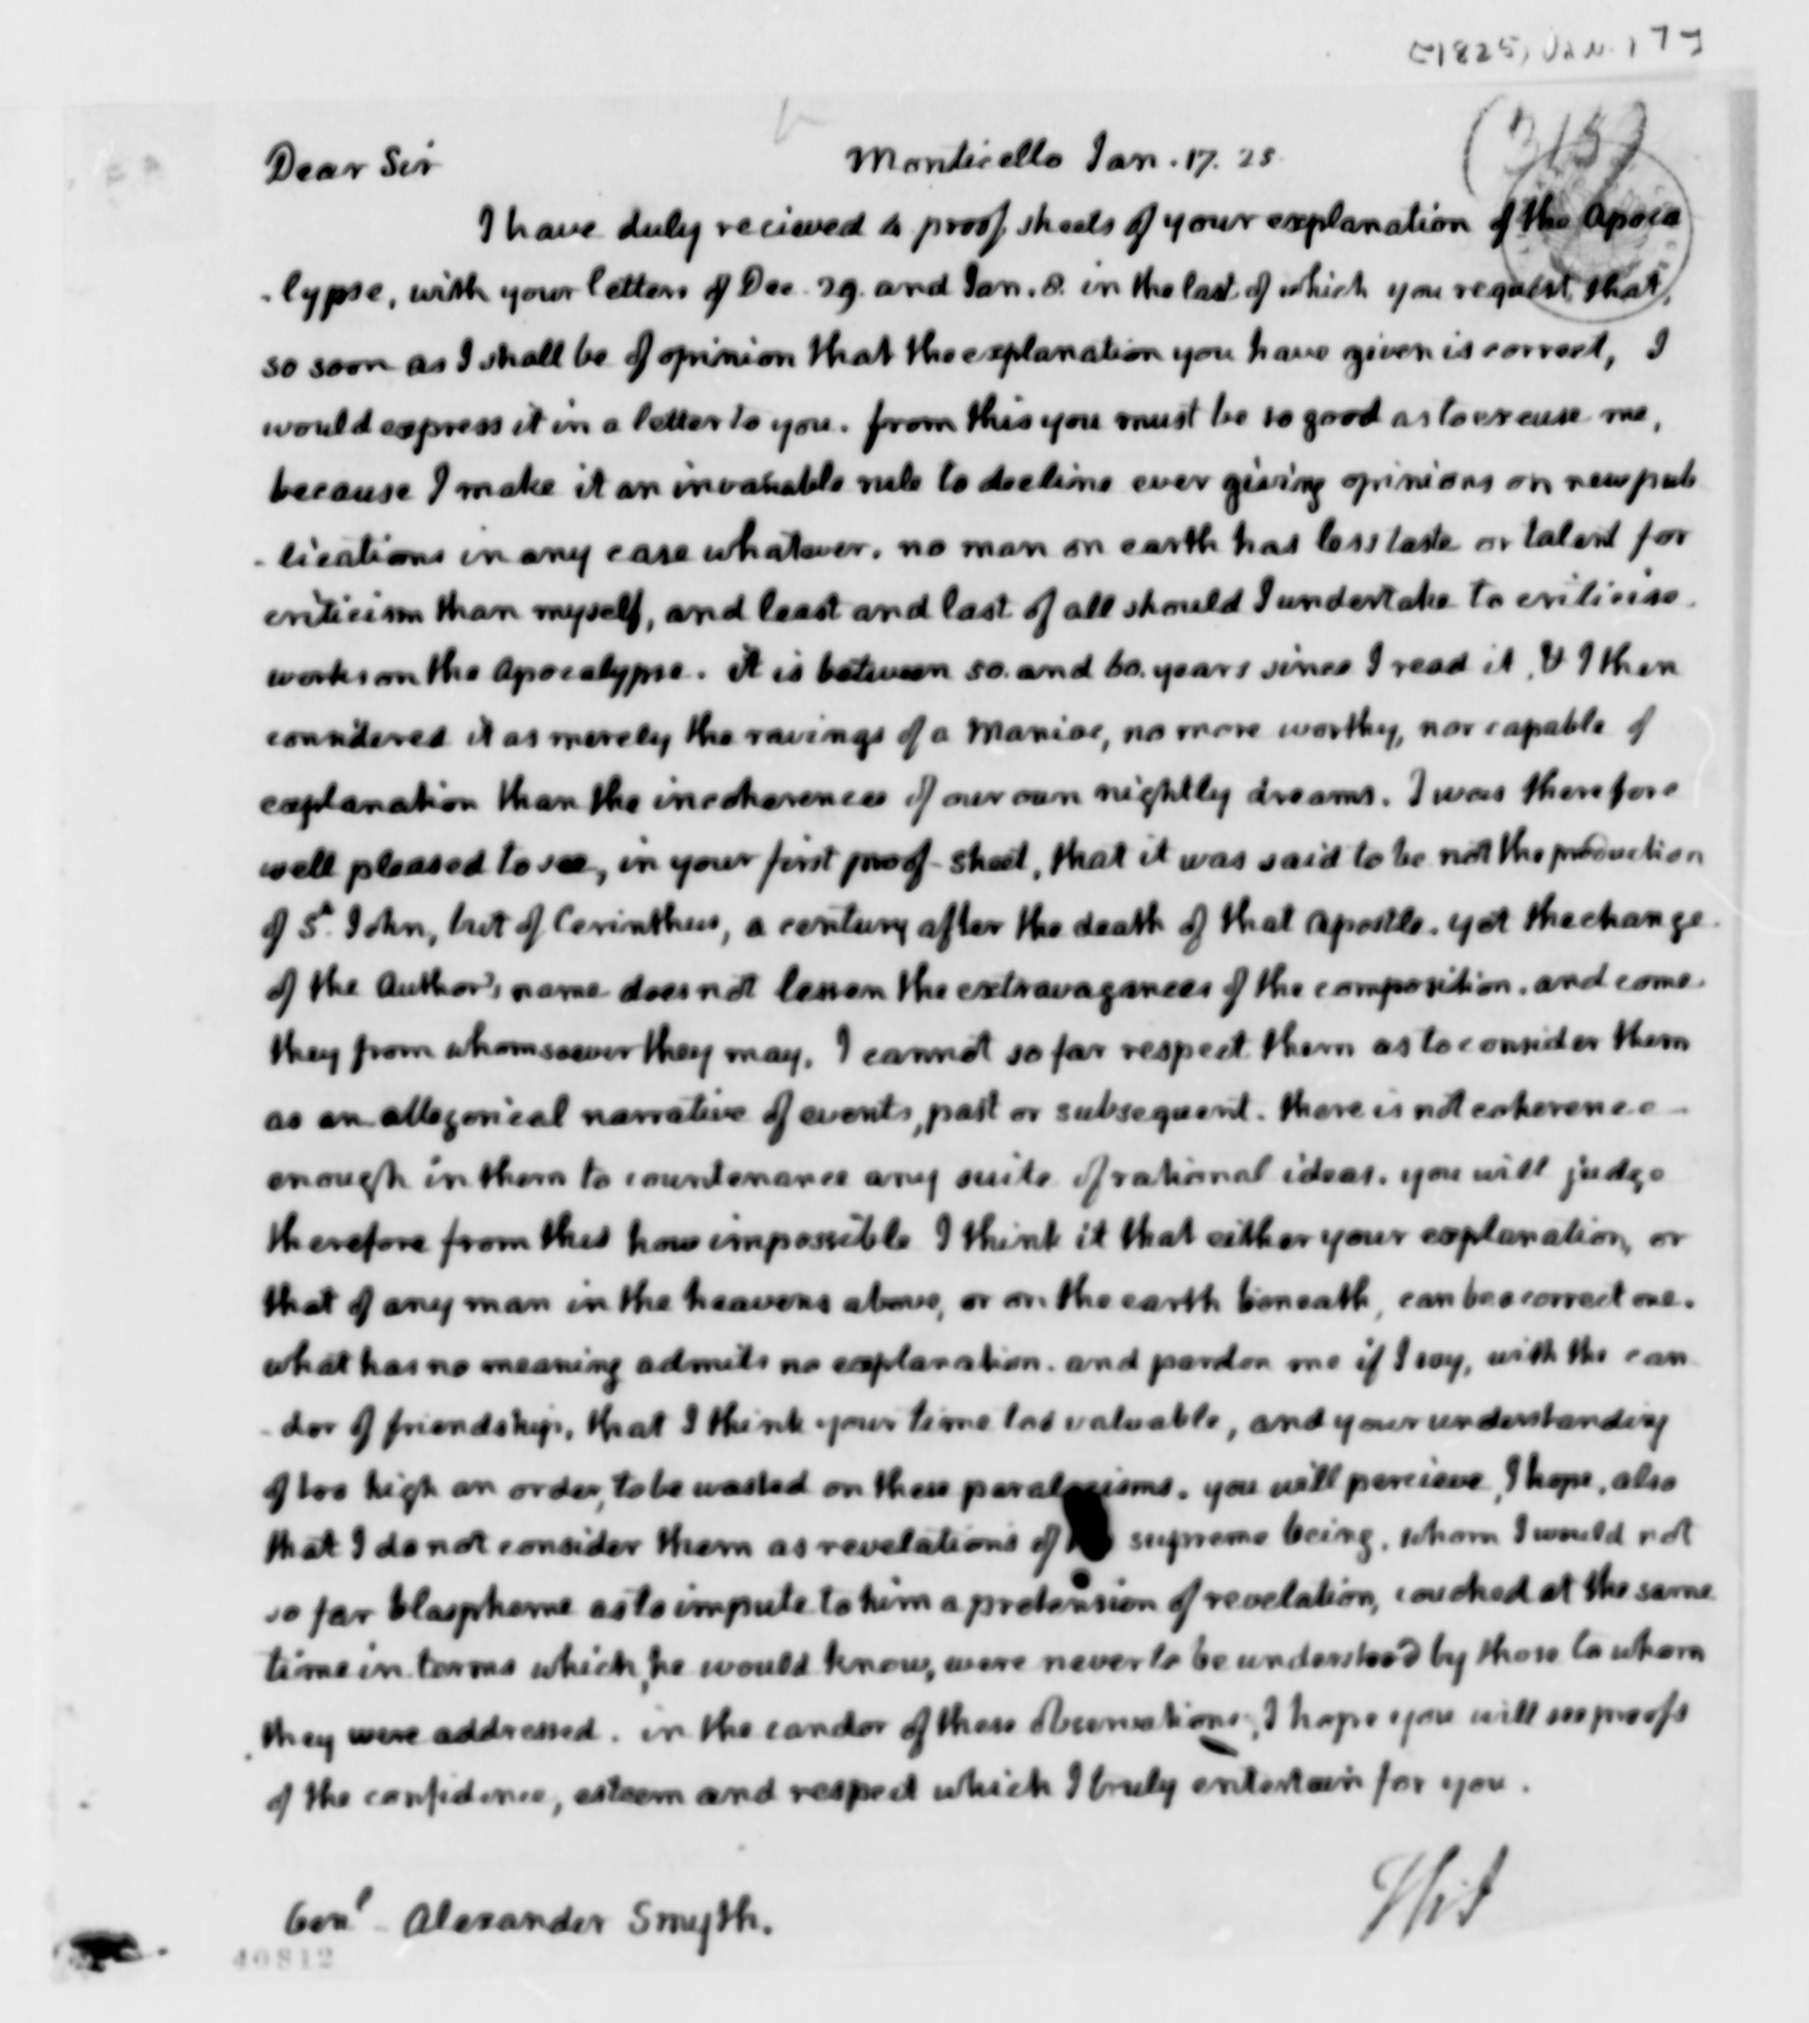 [1825, Jan. 17]
(315)
Dear Sir Monticello Jan. 17. 25
I have duly recieved 4 proof sheets of your explanation of the Apoca
-lypse, with your letters of Dec. 29. and Jan. 8. in the last of which you request that,
so soon as I shall be of opinion that the explanation you have given is correct, I
would express it in a letter to you. from this you must be so good as to excuse me,
because I make it an invariable rule to decline ever giving opinions on new pub
-lications in any case whatever. no man on earth has less taste or talent for
criticism than myself, and least and last of all should I undertake to criticise
works on the Apocalypse. it is between 50. and 60. years since I read it, & I then
considered it as merely the ravings of a Maniac, no more worthy, nor capable of
explanation than the incoherences of our own nightly dreams. I was therefore
well pleased to see, in your first proof-sheet, that it was said to be not the production
of St. John, but of Cerinthus, a century after the death of that Apostle. yet the change
of the Author's name does not lessen the extravagances of the composition. and come
they from whomsoever they may, I cannot so far respect them as to consider them
as an allegorical narrative of events, past or subsequent. there is not coherence
enough in them to countenance any suite of rational ideas. you will judge
therefore from this how impossible I think it that either your explanation, or
that of any man in the heavens above, or on the earth beneath, can be a correct one.
what has no meaning admits no explanation. and pardon me if I say, with the can
-dor of friendship, that I think your time too valuable, and your understanding
of too high an order, to be wasted on these paralogisms. you will percieve, I hope, also
that I do not consider them as revelations of supreme being, whom I would not
so far blaspheme as to impute to him a pretension of revelation, couched at the same
time in terms which, he would know, were never to be understood by those to whom
they were addressed. in the candor of these observations, I hope you will see proofs
of the confidence, esteem and respect which I truly entertain for you.
Th:J
Genl Alexander Smyth.
40812